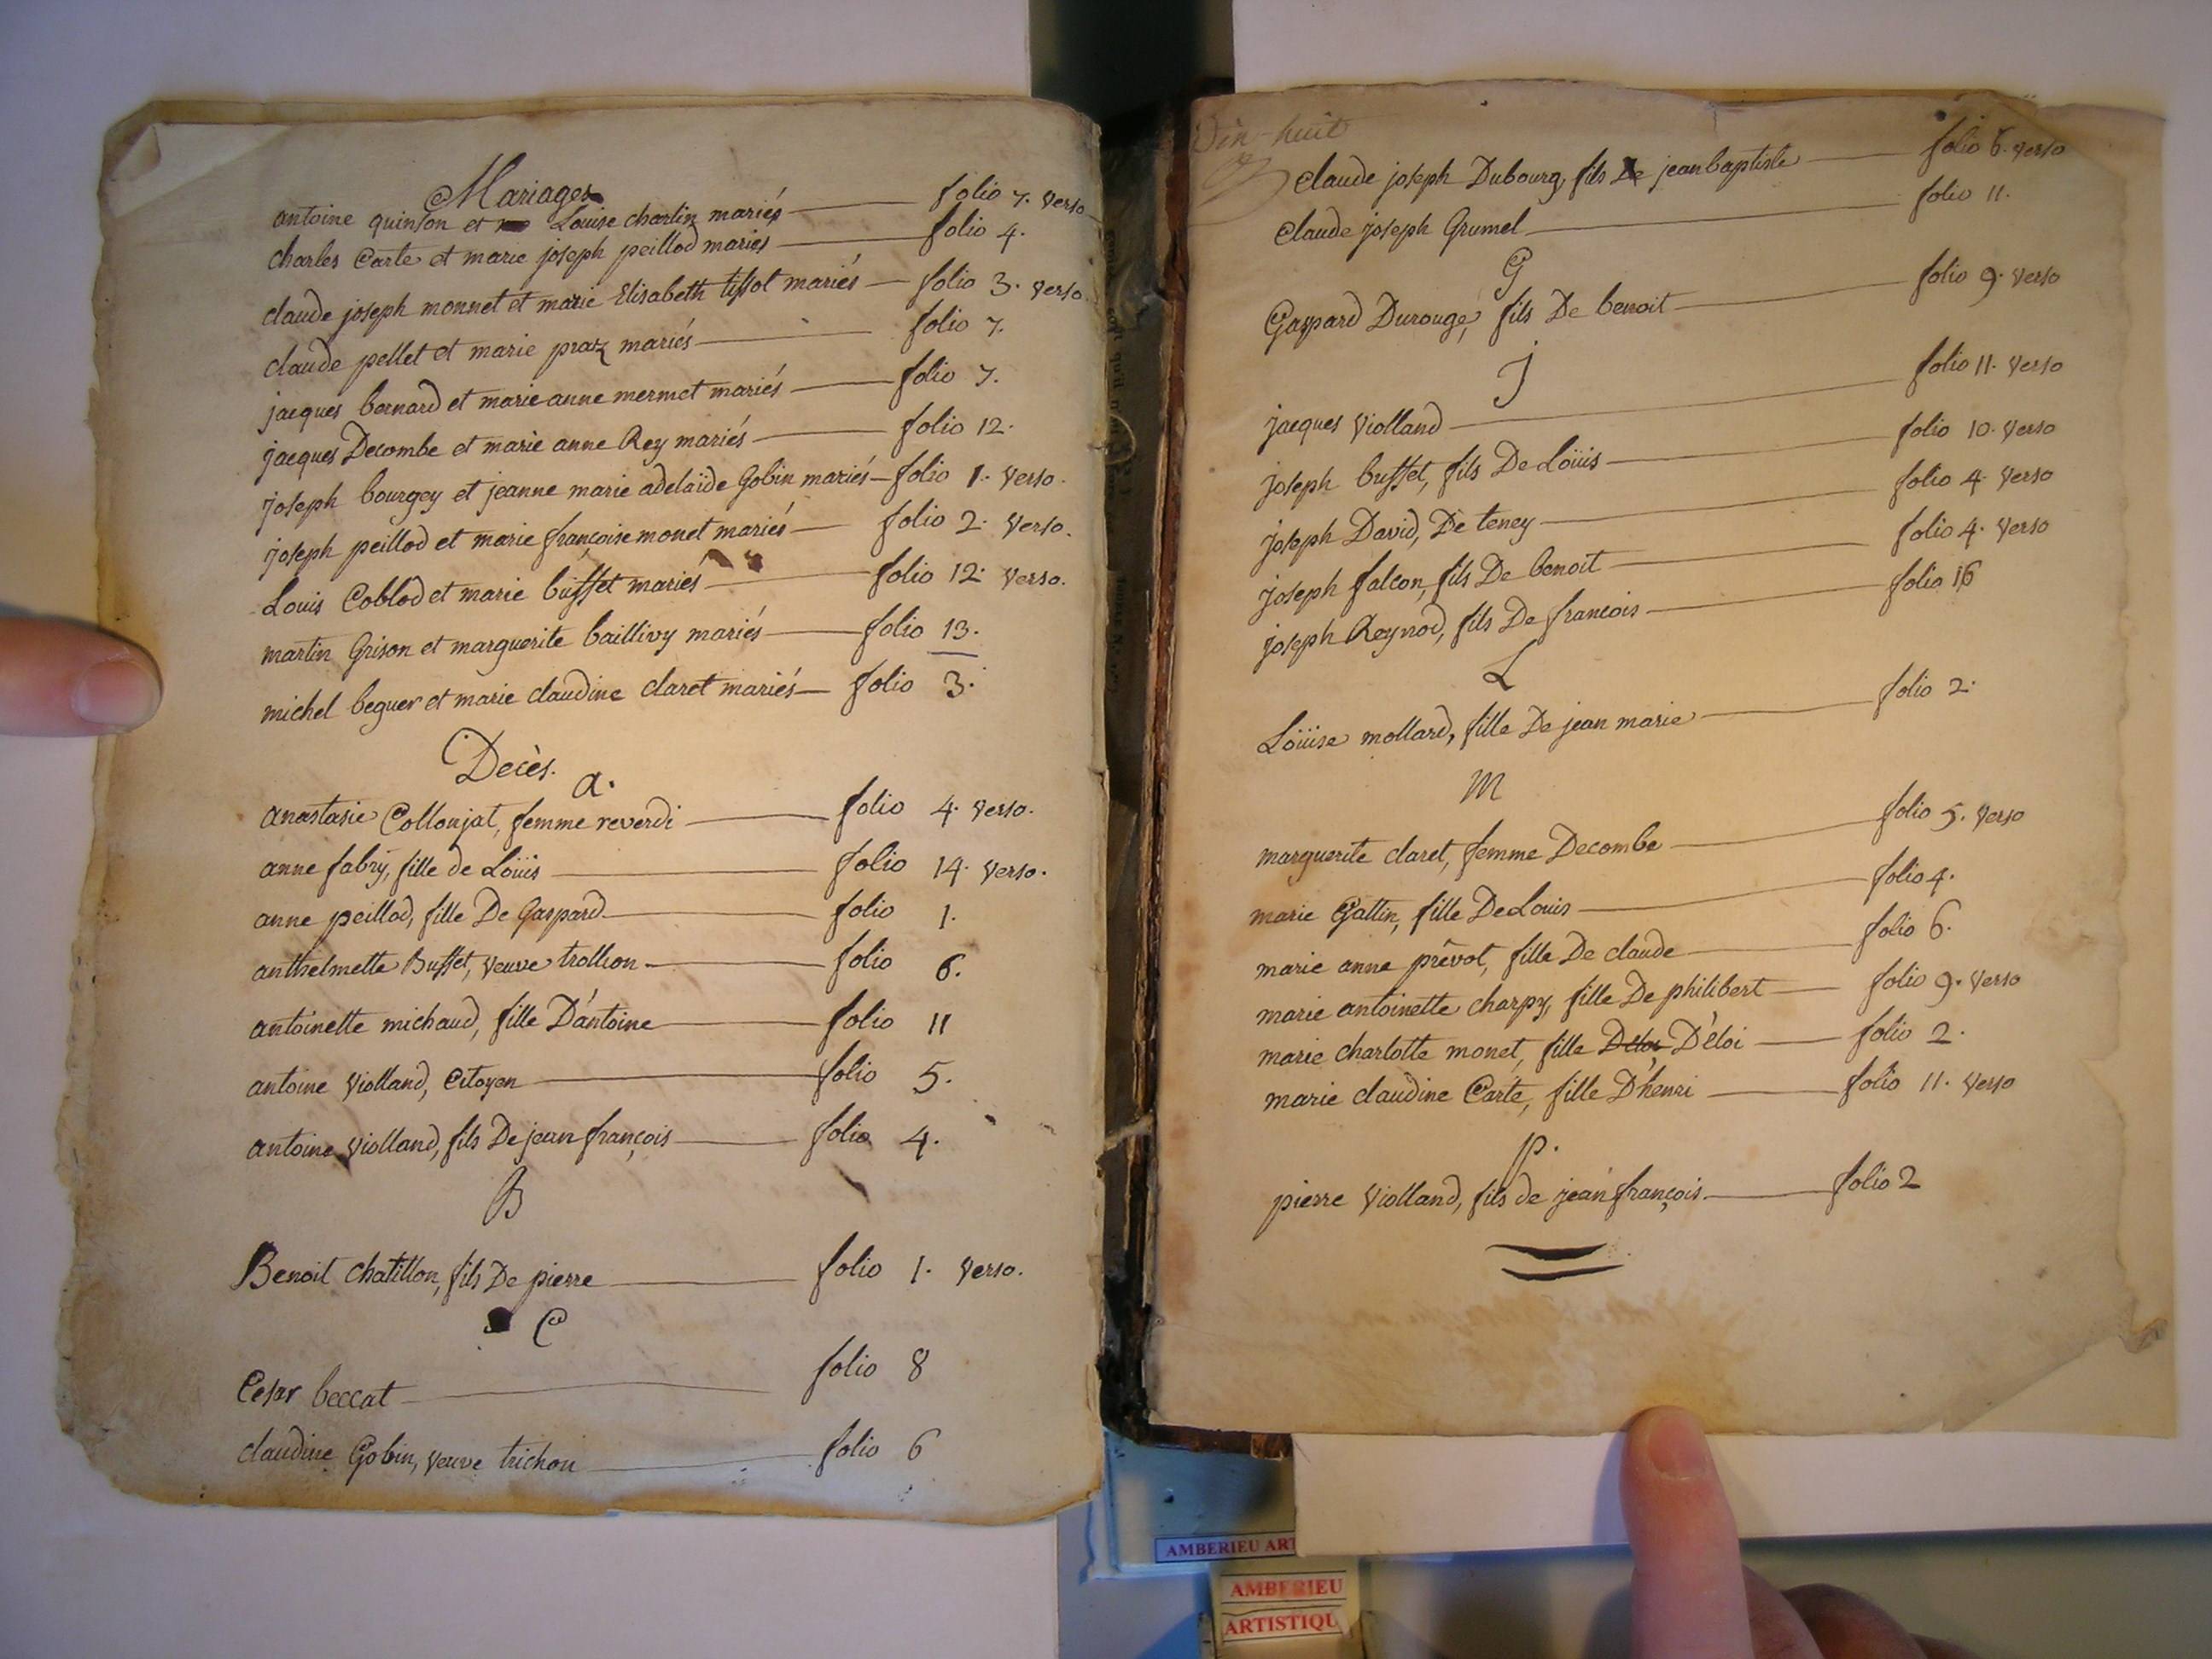 Mariages
antoine quinson et Louise charlin mariés folio 7. verso
charles Carte et marie joseph peillod mariés folio 4.
claude joseph monnet et marie Elisabeth tissot mariés folio 3. verso
claude pellet et marie praz mariés folio 7.
jacques bernard et marie anne mermet mariés folio 7.
jacques Decombe et marie anne Rey mariés folio 12.
joseph bourgey et jeanne marie adelaïde Gobin mariés folio 1. verso.
joseph peillod et marie françoise monet mariés folio 2. verso.
Louis Coblod et marie buffet mariés folio 12. verso.
martin Grison et marguerite baillivy mariés folio 13.
michel beguer et marie claudine claret mariés folio 3.
Decès.
a.
anastasie Collonjat, femme reverdi folio 4. verso.
anne fabry, fille de Loüis folio 14. verso.
anne peillod, fille De Gaspard folio 1.
anthelmette Buffet, veuve trollion folio 6.
antoinette michaud, fille D'antoine folio 11
antoine violland, Citoyen folio 5.
antoine violland, fils De jean françois folio 4.
B
Benoit chatillon, fils De pierre folio 1. verso.
C
Cesar beccat folio 8
claudine Gobin, veuve trichon folio 6
vin-huit
claude joseph Dubourg, fils De jean baptiste folio 6. verso
claude joseph Grumel folio 11.
G
Gaspard Durouge, fils De benoit folio 9. verso
J
jacques violland folio 11. verso
joseph buffet, fils De Loüis folio 10. verso
joseph David, De teney folio 4. verso
joseph falcon, fils De benoit folio 4. verso
joseph Reynod, fils De francois folio 16
L
Loüise mollard, fille De jean marie folio 2.
M
marguerite claret, femme Decombe folio 5. verso
marie Gattin, fille De Louis folio 4.
marie anne prêvot, fille De claude folio 6.
marie antoinette charpy, fille De philibert folio 9. verso
marie charlotte monet, fille D'éloi folio 2.
marie claudine Carte, fille D'henri folio 11. verso
P.
pierre violland, fils de jean françois folio 2
AMBERIEU ART
AMBERIEU
ARTISTIQU